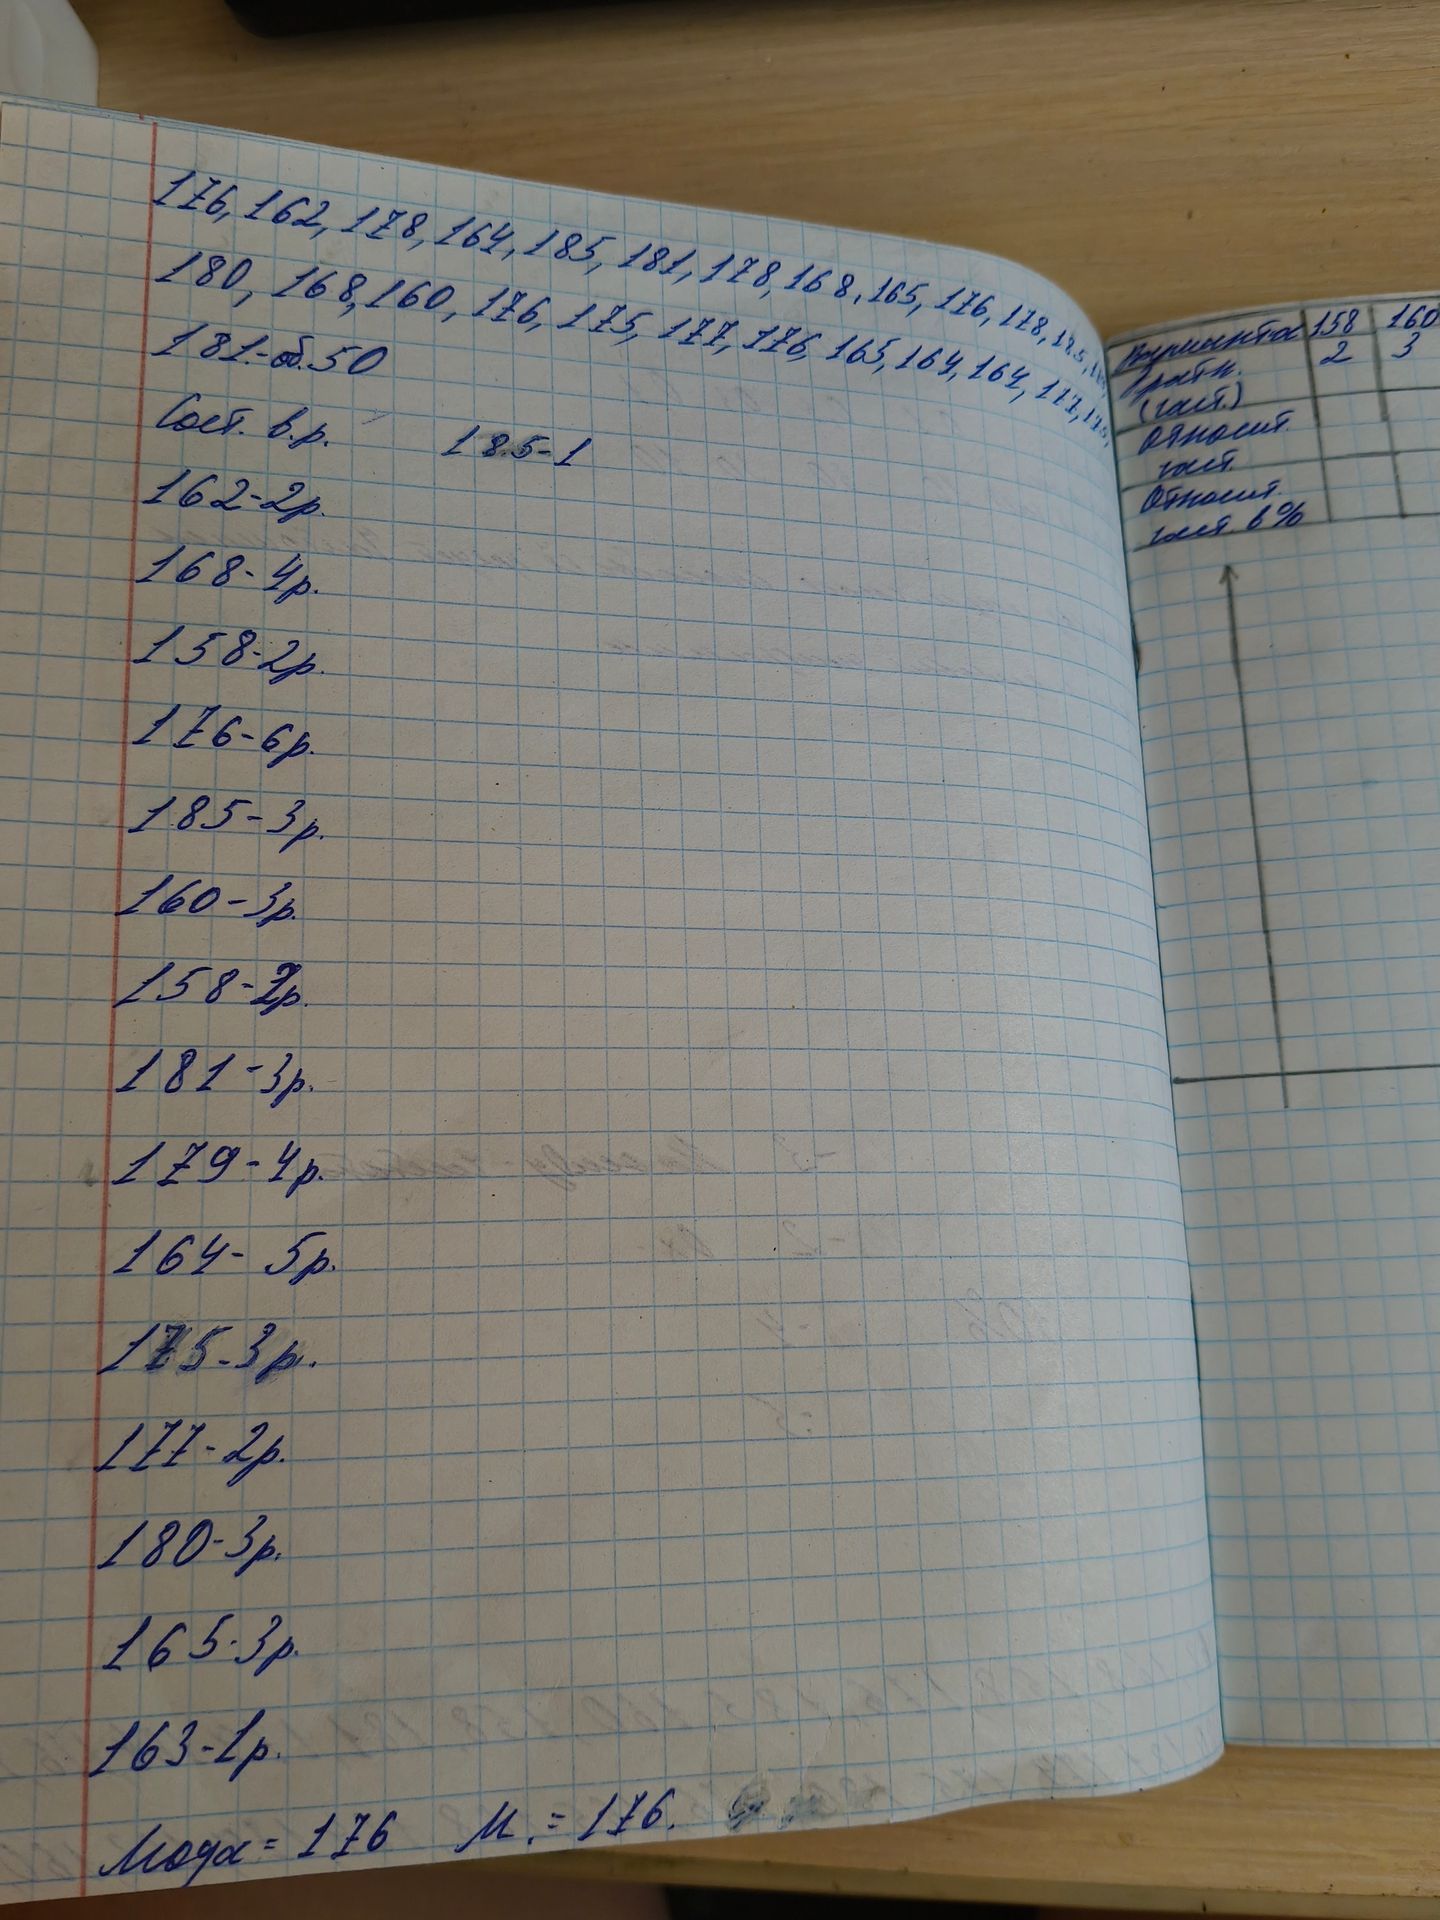 176, 162, 178, 164, 185, 181, 178, 168, 165, 176, 178, 185,
180, 168, 160, 176, 175, 177, 176, 165, 164, 164, 177, 175,
181-об. 50
Сост. в.р. 185-1
162-2р.
168-4р.
158-2р.
176-6р.
185-3р.
160-3р.
158-2р.
181-3р.
179-4р.
164- 5р.
175-3р.
177-2р.
180-3р.
165-3р.
163-1р.
Мода = 176 М. = 176.
Варианта 158 160
кратн. 2 3
(част.)
Относит.
част.
Относит.
част. в %